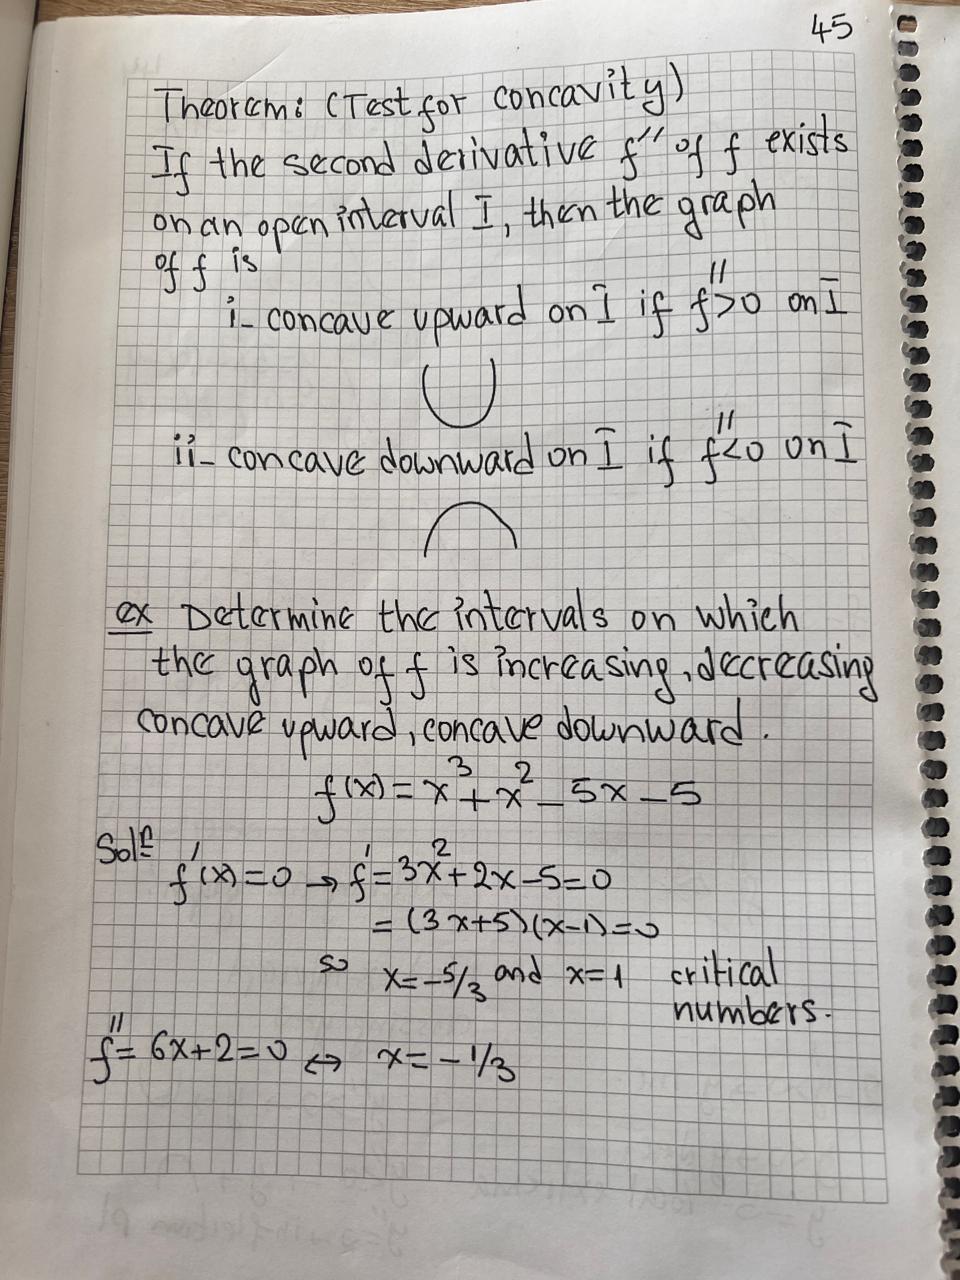 45
Theorem: (Test for concavity)
If the second derivative f'' of f exists
on an open interval I, then the graph
of f is
i- concave upward on I if f''>0 on I
ii- concave downward on I if f''<0 on I
ex Determine the intervals on which
the graph of f is increasing, decreasing
concave upward, concave downward.
f(x) = x³ + x² - 5x - 5
Solⁿ
f'(x) = 0 → f' = 3x² + 2x - 5 = 0
= (3x+5)(x-1) = 0
so x = -5/3 and x = 1 critical
numbers.
f'' = 6x + 2 = 0 ↔ x = -1/3